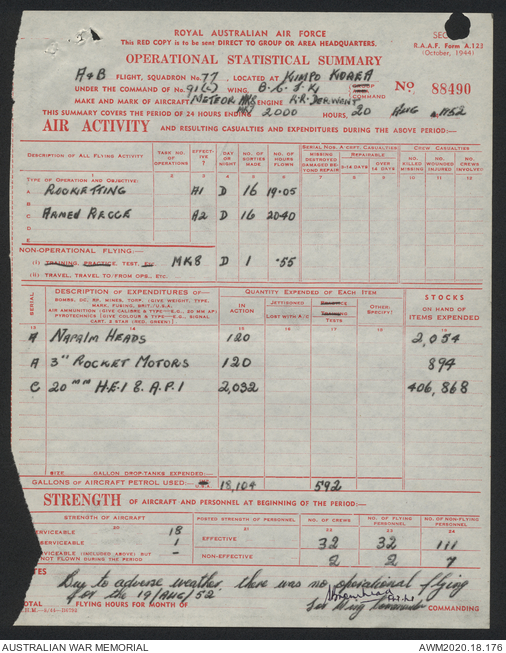 ROYAL AUSTRALIAN AIR FORCE
This RED COPY is to be sent DIRECT TO GROUP OR AREA HEADQUARTERS.
R.A.A.F. Form A.123
(October, 1944)
OPERATIONAL STATISTICAL SUMMARY
A & B FLIGHT, SQUADRON No. 77, LOCATED AT KIMPO KOREA
UNDER THE COMMAND OF No. 91(C) WING, B.C.J.K. GROUP COMMAND No 88490
MAKE AND MARK OF AIRCRAFT METEOR MK8 ENGINE R.R. DERWENT
THIS SUMMARY COVERS THE PERIOD OF 24 HOURS ENDING 2000 HOURS, 20 AUG 1952
AIR ACTIVITY AND RESULTING CASUALTIES AND EXPENDITURES DURING THE ABOVE PERIOD:—
DESCRIPTION OF ALL FLYING ACTIVITY TASK NO. OF OPERATIONS EFFECT-IVE ? DAY OR NIGHT NO. OF SORTIES MADE NO. OF HOURS FLOWN
SERIAL NOS. A'CRFT. CASUALTIES CREW CASUALTIES
MISSING DESTROYED DAMAGED BEYOND REPAIR REPAIRABLE 0-14 DAYS OVER 14 DAYS NO. KILLED MISSING NO. WOUNDED INJURED NO. CREWS INVOLVED
1 2 3 4 5 6 7 8 9 10 11 12
TYPE OF OPERATION AND OBJECTIVE:
A ROCKETTING A1 D 16 19·05
B ARMED RECCE A2 D 16 2040
C
D
E
NON-OPERATIONAL FLYING:—
(I) TRAINING, PRACTICE, TEST, Etc MK8 D 1 ·55
(II) TRAVEL, TRAVEL TO/FROM OPS., ETC.
SERIAL DESCRIPTION OF EXPENDITURES OF— QUANTITY EXPENDED OF EACH ITEM STOCKS
BOMBS, DC, RP, MINES, TORP. (GIVE WEIGHT, TYPE, MARK, FUZING, BRIT./U.S.A.
AIR AMMUNITION (GIVE CALIBRE & TYPE—E.G., 20 MM AP)
PYROTECHNICS (GIVE COLOUR & TYPE—E.G., SIGNAL CART. 2 STAR (RED, GREEN)
IN ACTION JETTISONED LOST WITH A/C TESTS OTHER: SPECIFY: ON HAND OF ITEMS EXPENDED
13 14 15 16 17 18 19
A NAPALM HEADS 120 2,054
A 3" ROCKET MOTORS 120 894
C 20 MM H.E.I & A.P.I 2,032 406,868
SIZE GALLON DROP-TANKS EXPENDED:—
GALLONS OF AIRCRAFT PETROL USED— U.S.A. 18,104 592
STRENGTH OF AIRCRAFT AND PERSONNEL AT BEGINNING OF THE PERIOD:—
STRENGTH OF AIRCRAFT POSTED STRENGTH OF PERSONNEL NO. OF CREWS NO. OF FLYING PERSONNEL NO. OF NON-FLYING PERSONNEL
20 21 22 23 24
ERVICEABLE 18 EFFECTIVE 32 32 111
SERVICEABLE 1
SERVICEABLE (INCLUDED ABOVE) BUT NOT FLOWN DURING THE PERIOD — NON-EFFECTIVE 2 2 7
NOTES Due to adverse weather there was no operational flying
for the 19/AUG/52.
TOTAL FLYING HOURS FOR MONTH OF for Wing Commander COMMANDING
AUSTRALIAN WAR MEMORIAL AWM2020.18.176